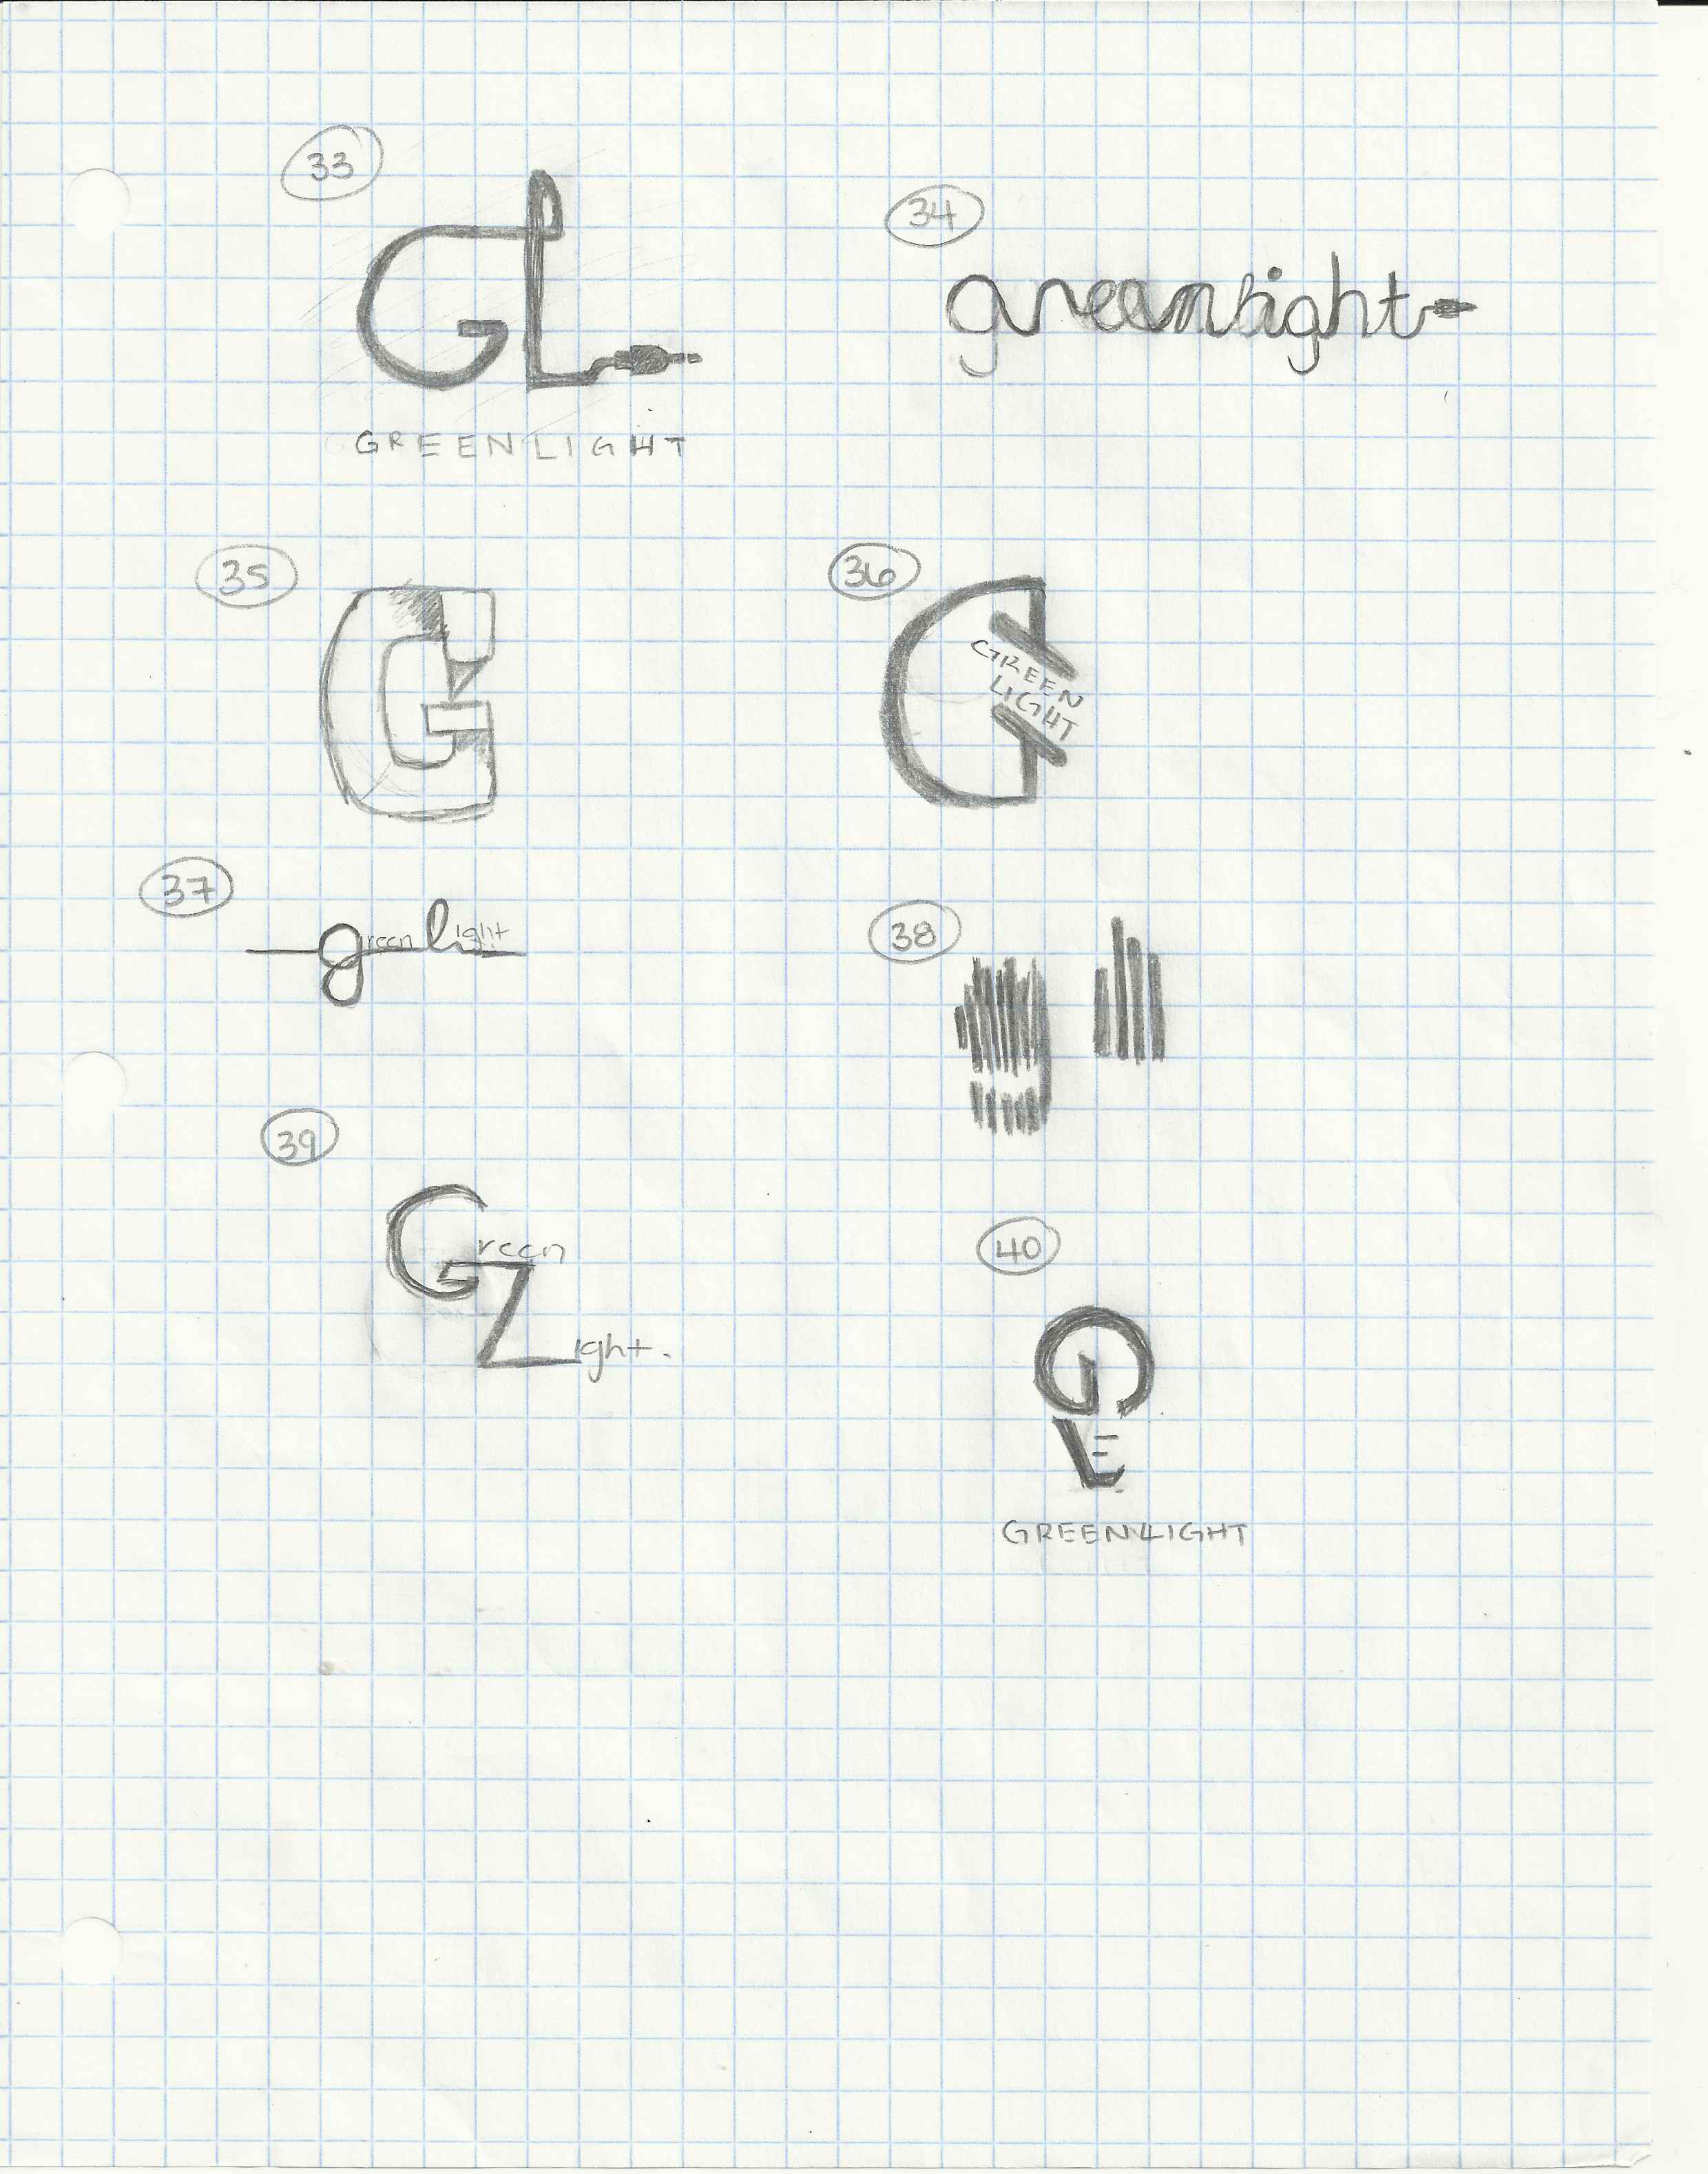 33
GL
GREENLIGHT
34
greenlight
35
G
36
G
GREEN
LIGHT
37
green light
38
39
Green
Light.
40
G
L
GREENLIGHT